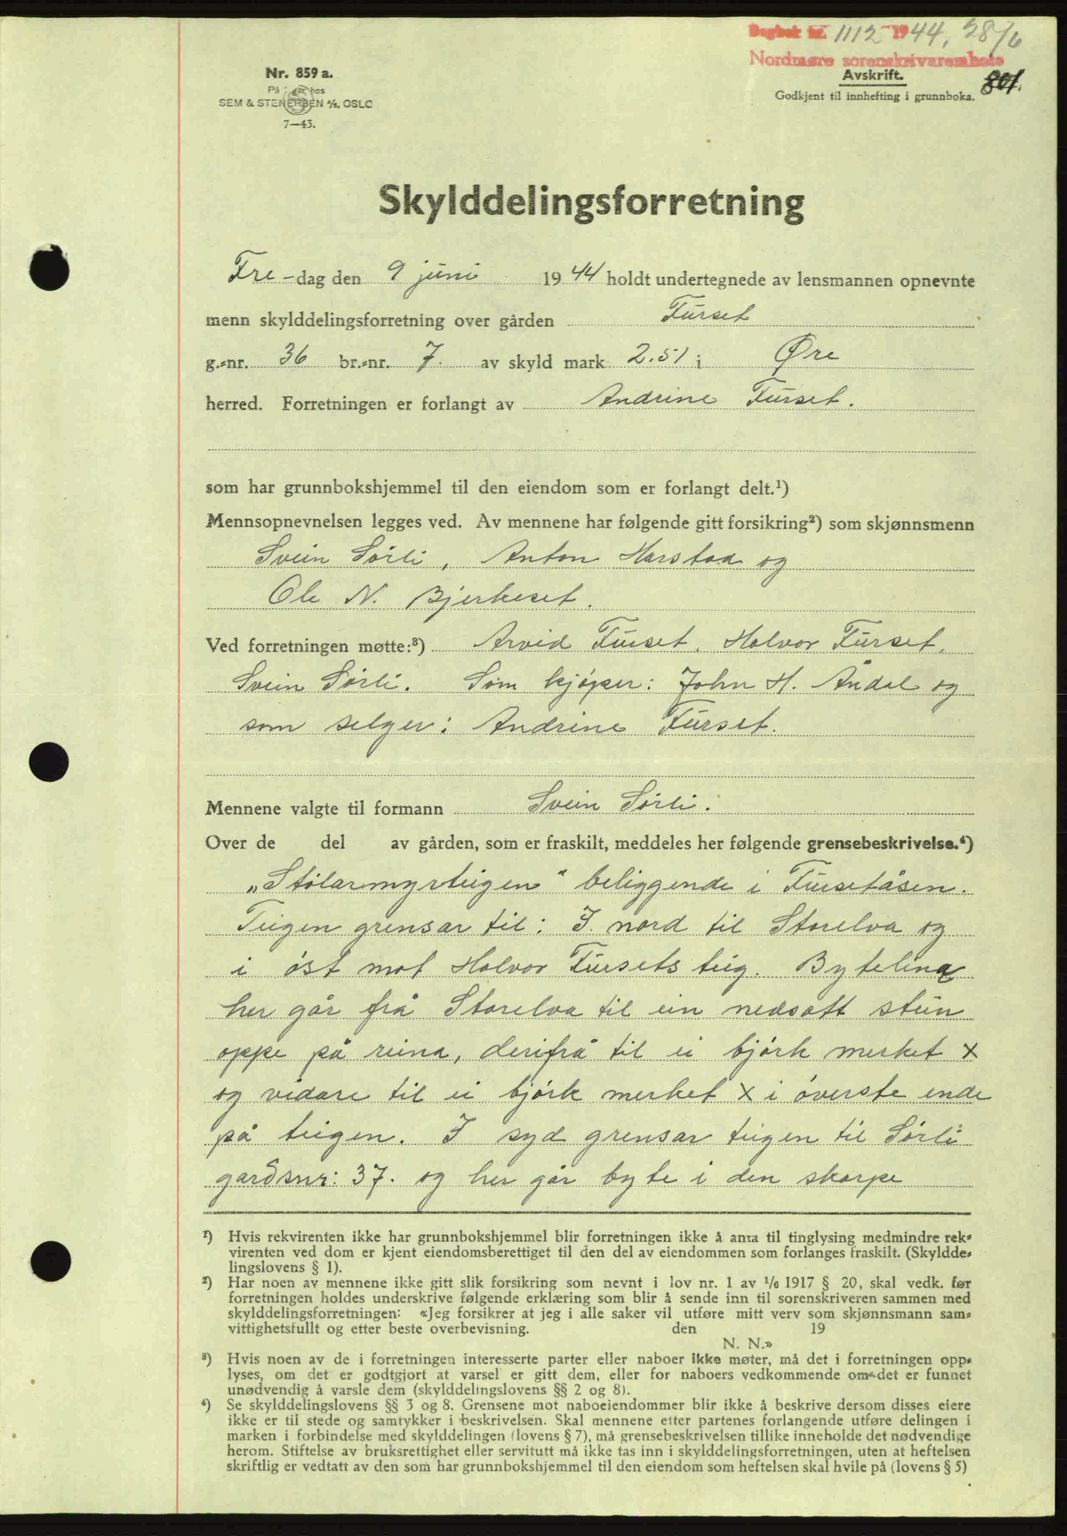 Dagbok nr. 1112 1944, 28/6
Nordmøre sorenskrivarembete
Nr. 859 a.
SEM & STENERSEN A/S, OSLO
7—43.
Avskrift.
801.
Godkjent til innhefting i grunnboka.
Skylddelingsforretning
Fre-dag den 9 juni 1944 holdt undertegnede av lensmannen opnevnte
menn skylddelingsforretning over gården Furset
g.-nr. 36 br.-nr. 7. av skyld mark 2.51 i Øre
herred. Forretningen er forlangt av Andrine Furset.
som har grunnbokshjemmel til den eiendom som er forlangt delt.¹)
Mennsopnevnelsen legges ved. Av mennene har følgende gitt forsikring²) som skjønnsmenn
Svein Sørli, Anton Harstad og
Ole N. Bjerkeset.
Ved forretningen møtte:³) Arvid Furset. Halvor Furset,
Svein Sørli. Som kjøper: John H. Ådal og
som selger: Andrine Furset.
Mennene valgte til formann Svein Sørli.
Over de del av gården, som er fraskilt, meddeles her følgende grensebeskrivelse.⁴)
„Stølarmyrteigen“ beliggende i Fursetåsen.
Teigen grensar til: I nord til Storelva og
i øst mot Halvor Fursets teig. Bytelina
her går frå Storelva til ein nedsatt stein
oppe på reina, derifrå til ei bjørk merket X
og vidare til ei bjørk merket X i øverste ende
på teigen. I syd grensar teigen til Sørli
gardsnr: 37. og her går byte i den skarpe
¹) Hvis rekvirenten ikke har grunnbokshjemmel blir forretningen ikke å anta til tinglysing medmindre rek-
virenten ved dom er kjent eiendomsberettiget til den del av eiendommen som forlanges fraskilt. (Skyldde-
lingslovens § 1).
²) Har noen av mennene ikke gitt slik forsikring som nevnt i lov nr. 1 av 1/6 1917 § 20, skal vedk. før
forretningen holdes underskrive følgende erklæring som blir å sende inn til sorenskriveren sammen med
skylddelingsforretningen: «Jeg forsikrer at jeg i alle saker vil utføre mitt verv som skjønnsmann sam-
vittighetsfullt og etter beste overbevisning. den 19
N. N.»
³) Hvis noen av de i forretningen interesserte parter eller naboer ikke møter, må det i forretningen opp-
lyses, om det er godtgjort at varsel er gitt dem, eller for naboers vedkommende om det er funnet
unødvendig å varsle dem (skylddelingslovens §§ 2 og 8).
⁴) Se skylddelingslovens §§ 3 og 8. Grensene mot naboeiendommer blir ikke å beskrive dersom disses eiere
ikke er til stede og samtykker i beskrivelsen. Skal mennene etter partenes forlangende utføre delingen i
marken i forbindelse med skylddelingen (lovens § 7), må grensebeskrivelsen tillike inneholde det nødvendige
herom. Stiftelse av bruksrettighet eller servitutt må ikke tas inn i skylddelingsforretningen, uten at heftelsen
skriftlig er vedtatt av den som har grunnbokshjemmel til den eiendom som heftelsen skal hvile på (lovens § 5)